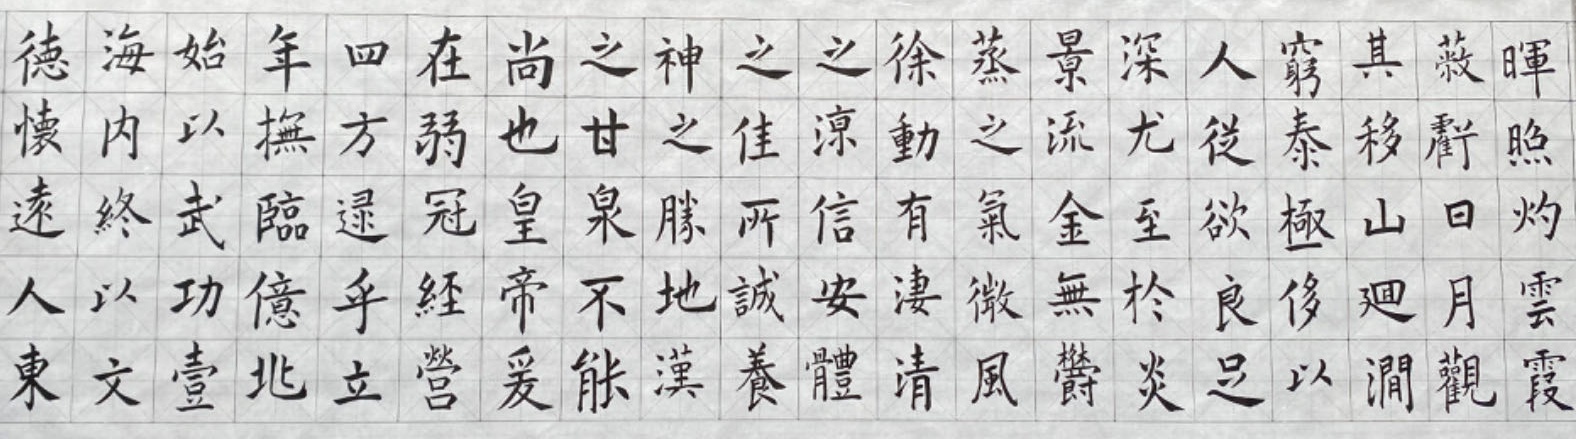 暉照灼雲霞
蔽虧日月觀
其移山廻澗
窮泰極侈以
人從欲良足
深尤至於炎
景流金無鬱
蒸之氣微風
徐動有淒清
之涼信安體
之佳所誠養
神之勝地漢
之甘泉不能
尚也皇帝爰
在弱冠經營
四方逮乎立
年撫臨億兆
始以武功壹
海内終以文
德懷遠人東